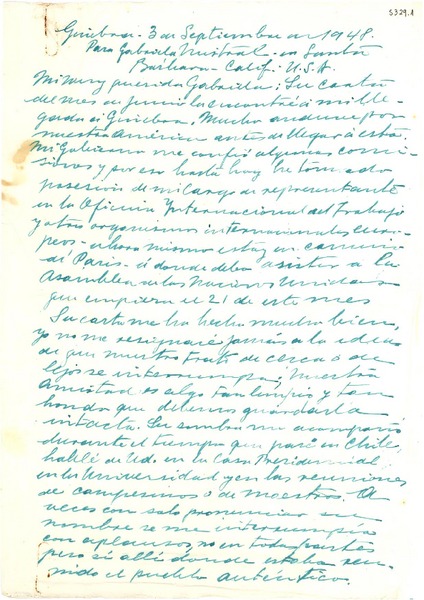 5329.1
Ginebra - 3 de Septiembre de 1948.
Para Gabriela Mistral - en Santa
Bárbara - Calif. U.S.A.
Mi muy querida Gabriela: Su carta
del mes de junio la encontré a mi lle-
gada a Ginebra. Mucho anduve por
nuestra América antes de llegar a ésta.
Mi Gobierno me confió algunas comi-
siones y por eso hasta hoy he tomado
posesión de mi cargo de representante
en la Oficina Internacional del Trabajo
y otros organismos internacionales euro-
peos - ahora mismo estoy en camino
de París - a donde debo asistir a la
Asamblea de las Naciones Unidas
que empieza el 21 de este mes
Su carta me ha hecho mucho bien,
yo no me resignaré jamás a la idea
de que nuestro trato de cerca ó de
lejos se interrumpa; Nuestra
Amistad es algo tan limpio y tan
honda que debemos guardarla
intacta. Su sombra me acompañó
durante el tiempo que pasé en Chile,
hablé de Ud. en la Casa Presidencial,
en la Universidad y en las reuniones
de campesinos ó de maestros. A
veces con solo pronunciar su
nombre se me interrumpía
con aplausos, no en todas partes
pero sí allí donde estaba reu-
nido el pueblo auténtico.